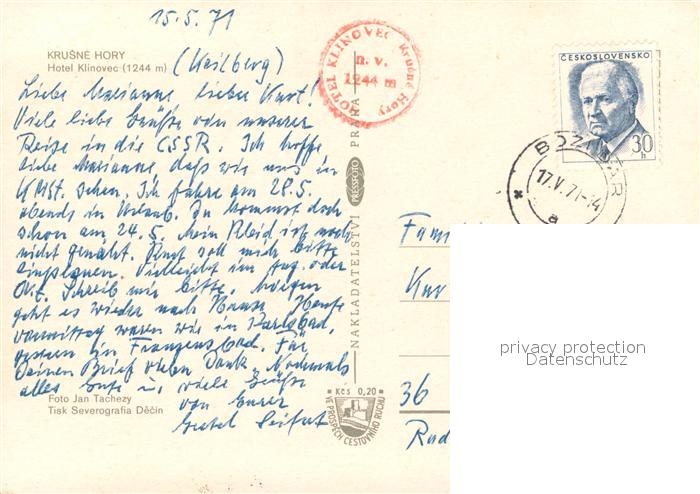 15.5.71
KRUŠNÉ HORY
Hotel Klínovec (1244 m)
(Keilberg)
Liebe Marianne, lieber Kurt!
Viele liebe Grüße von unserer
Reise in die ČSSR. Ich hoffe
liebe Marianne daß wir uns in
sehen. Ich fahre am 28.5.
abends in Urlaub. Du kommst doch
schon am 24.5. Mein Kleid ist noch
nicht genäht. soll mich bitte
einplanen. Vielleicht im Aug. oder
Okt. Schreib mir bitte. Morgen
geht es wieder nach Hause. Heute
vormittag waren wir in Karlsbad,
gestern in Franzensbad. Für
Deinen Brief vielen Dank. Nochmals
alles Gute u. viele Grüße
von Eurer
Seifert
Foto Jan Tachezy
Tisk Severografia Děčín
HOTEL KLÍNOVEC Krušné Hory
n. v.
1244 m
NAKLADATELSTVÍ PRESSFOTO PRAHA
Kčs 0,20
VE PROSPĚCH CESTOVNÍHO RUCHU
ČESKOSLOVENSKO
30 h
BOŽÍ DAR
17.V.71-14
a
Fam
Kur
36
Rad
privacy protection
Datenschutz